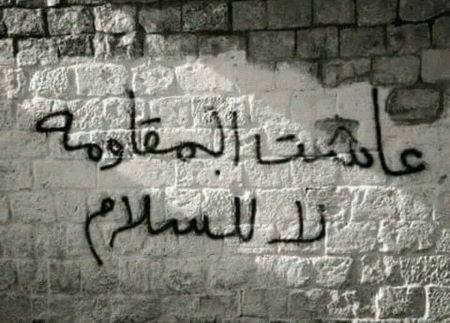 عاشت المقاومه
لا للسلام